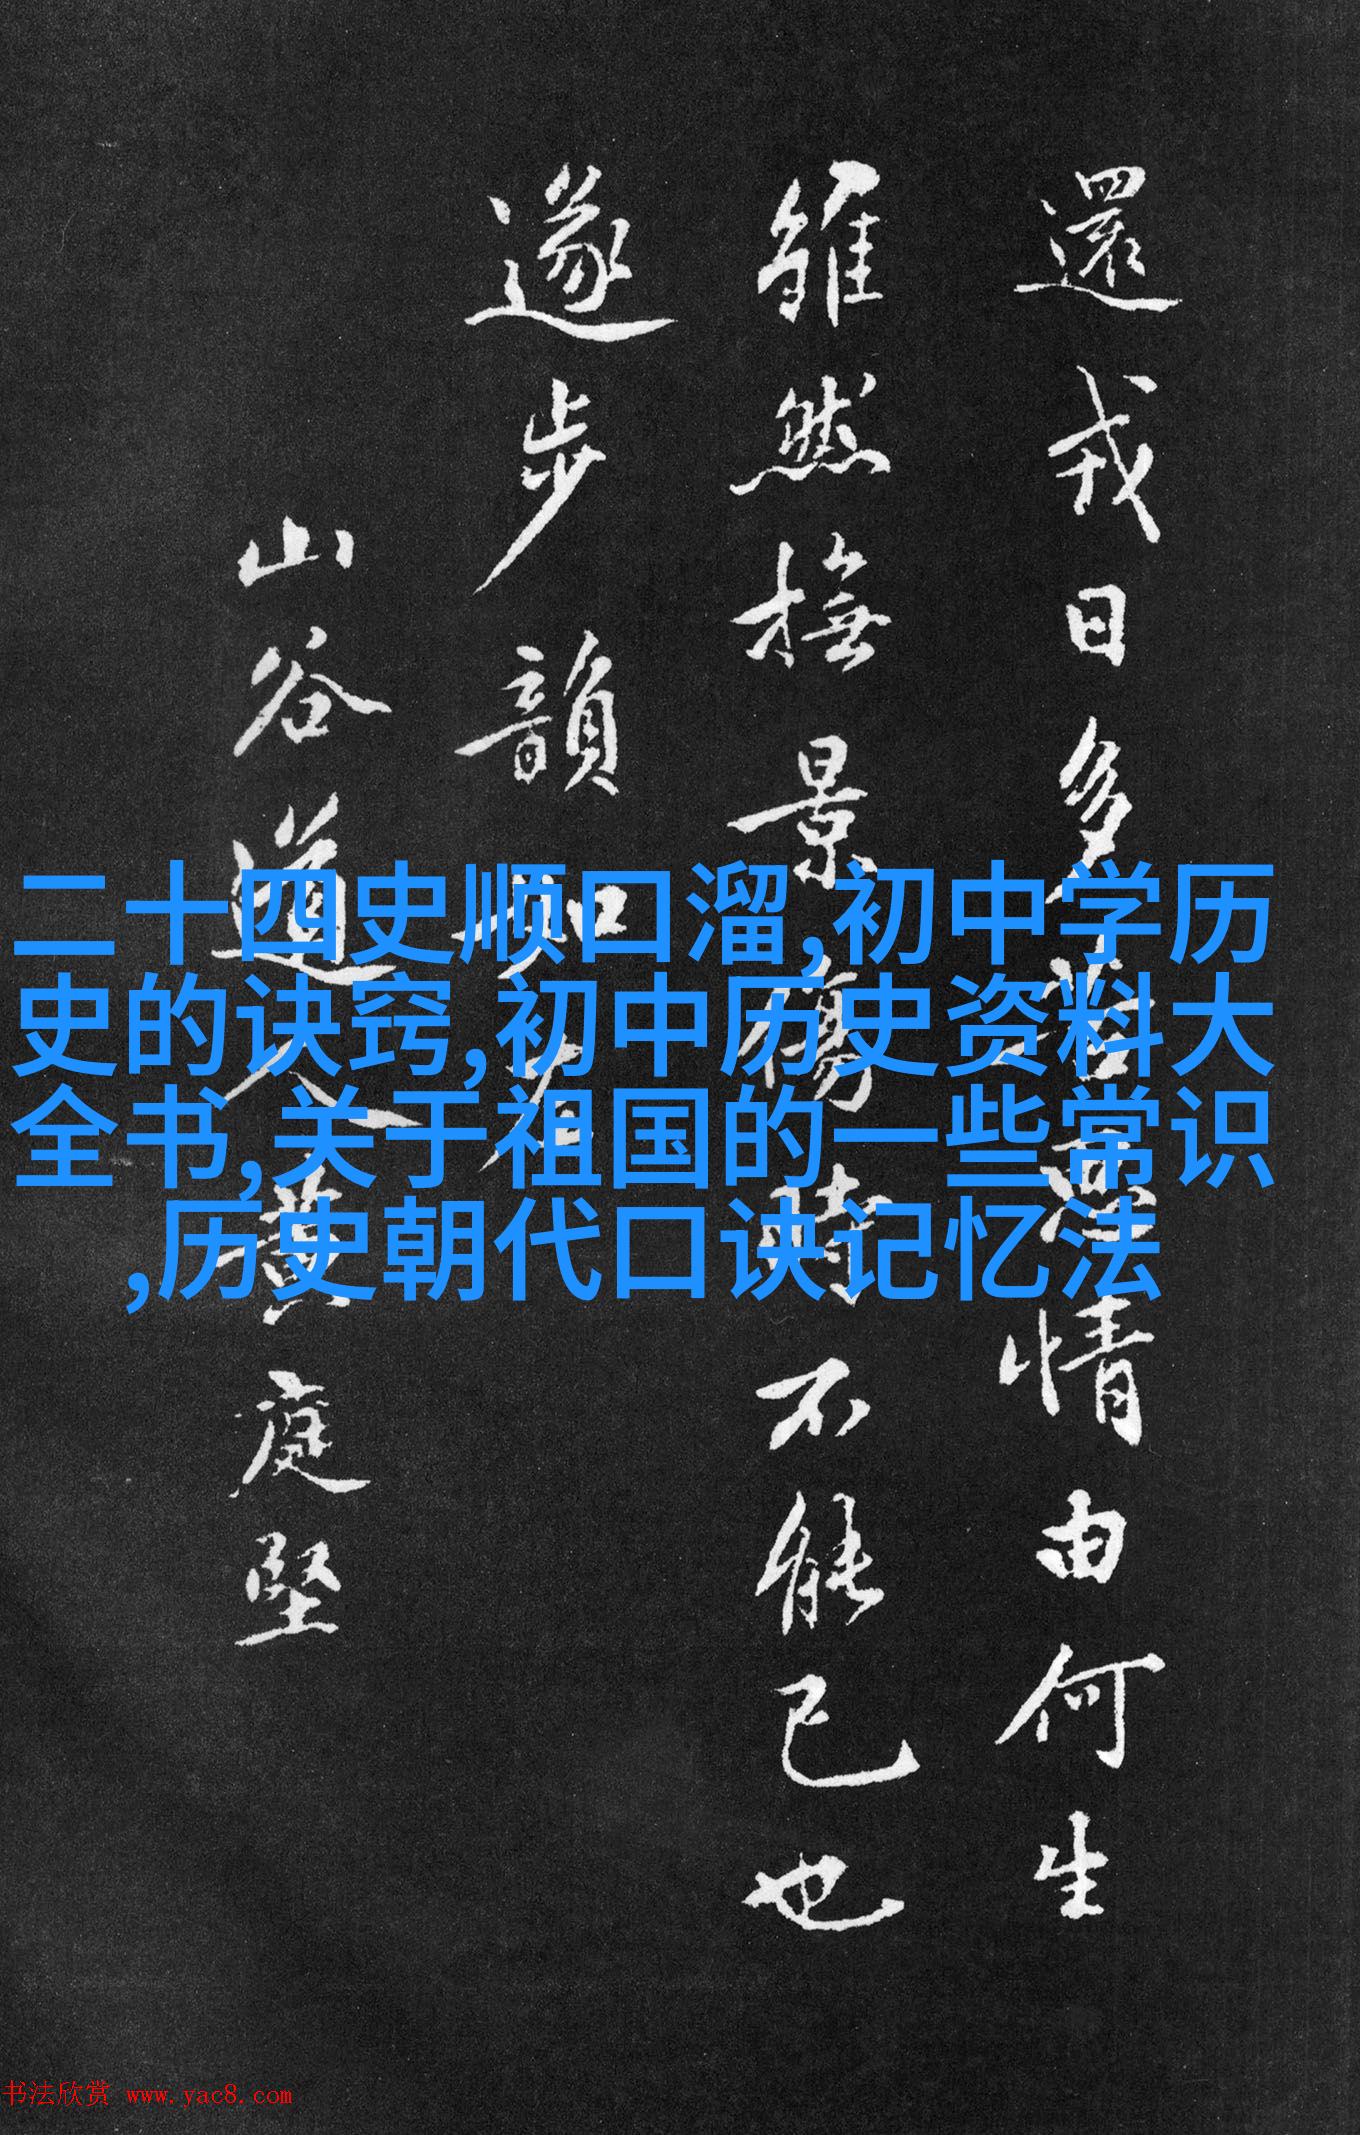 還戎日多益無情由何生
雖然撫景傷時不能已也
遂步韻和
山谷道人黄庭堅
二十四史顺口溜,初中学历
史的诀窍,初中历史资料大
全书,关于祖国的一些常识
,历史朝代口诀记忆法
书法欣赏 www.yac8.com